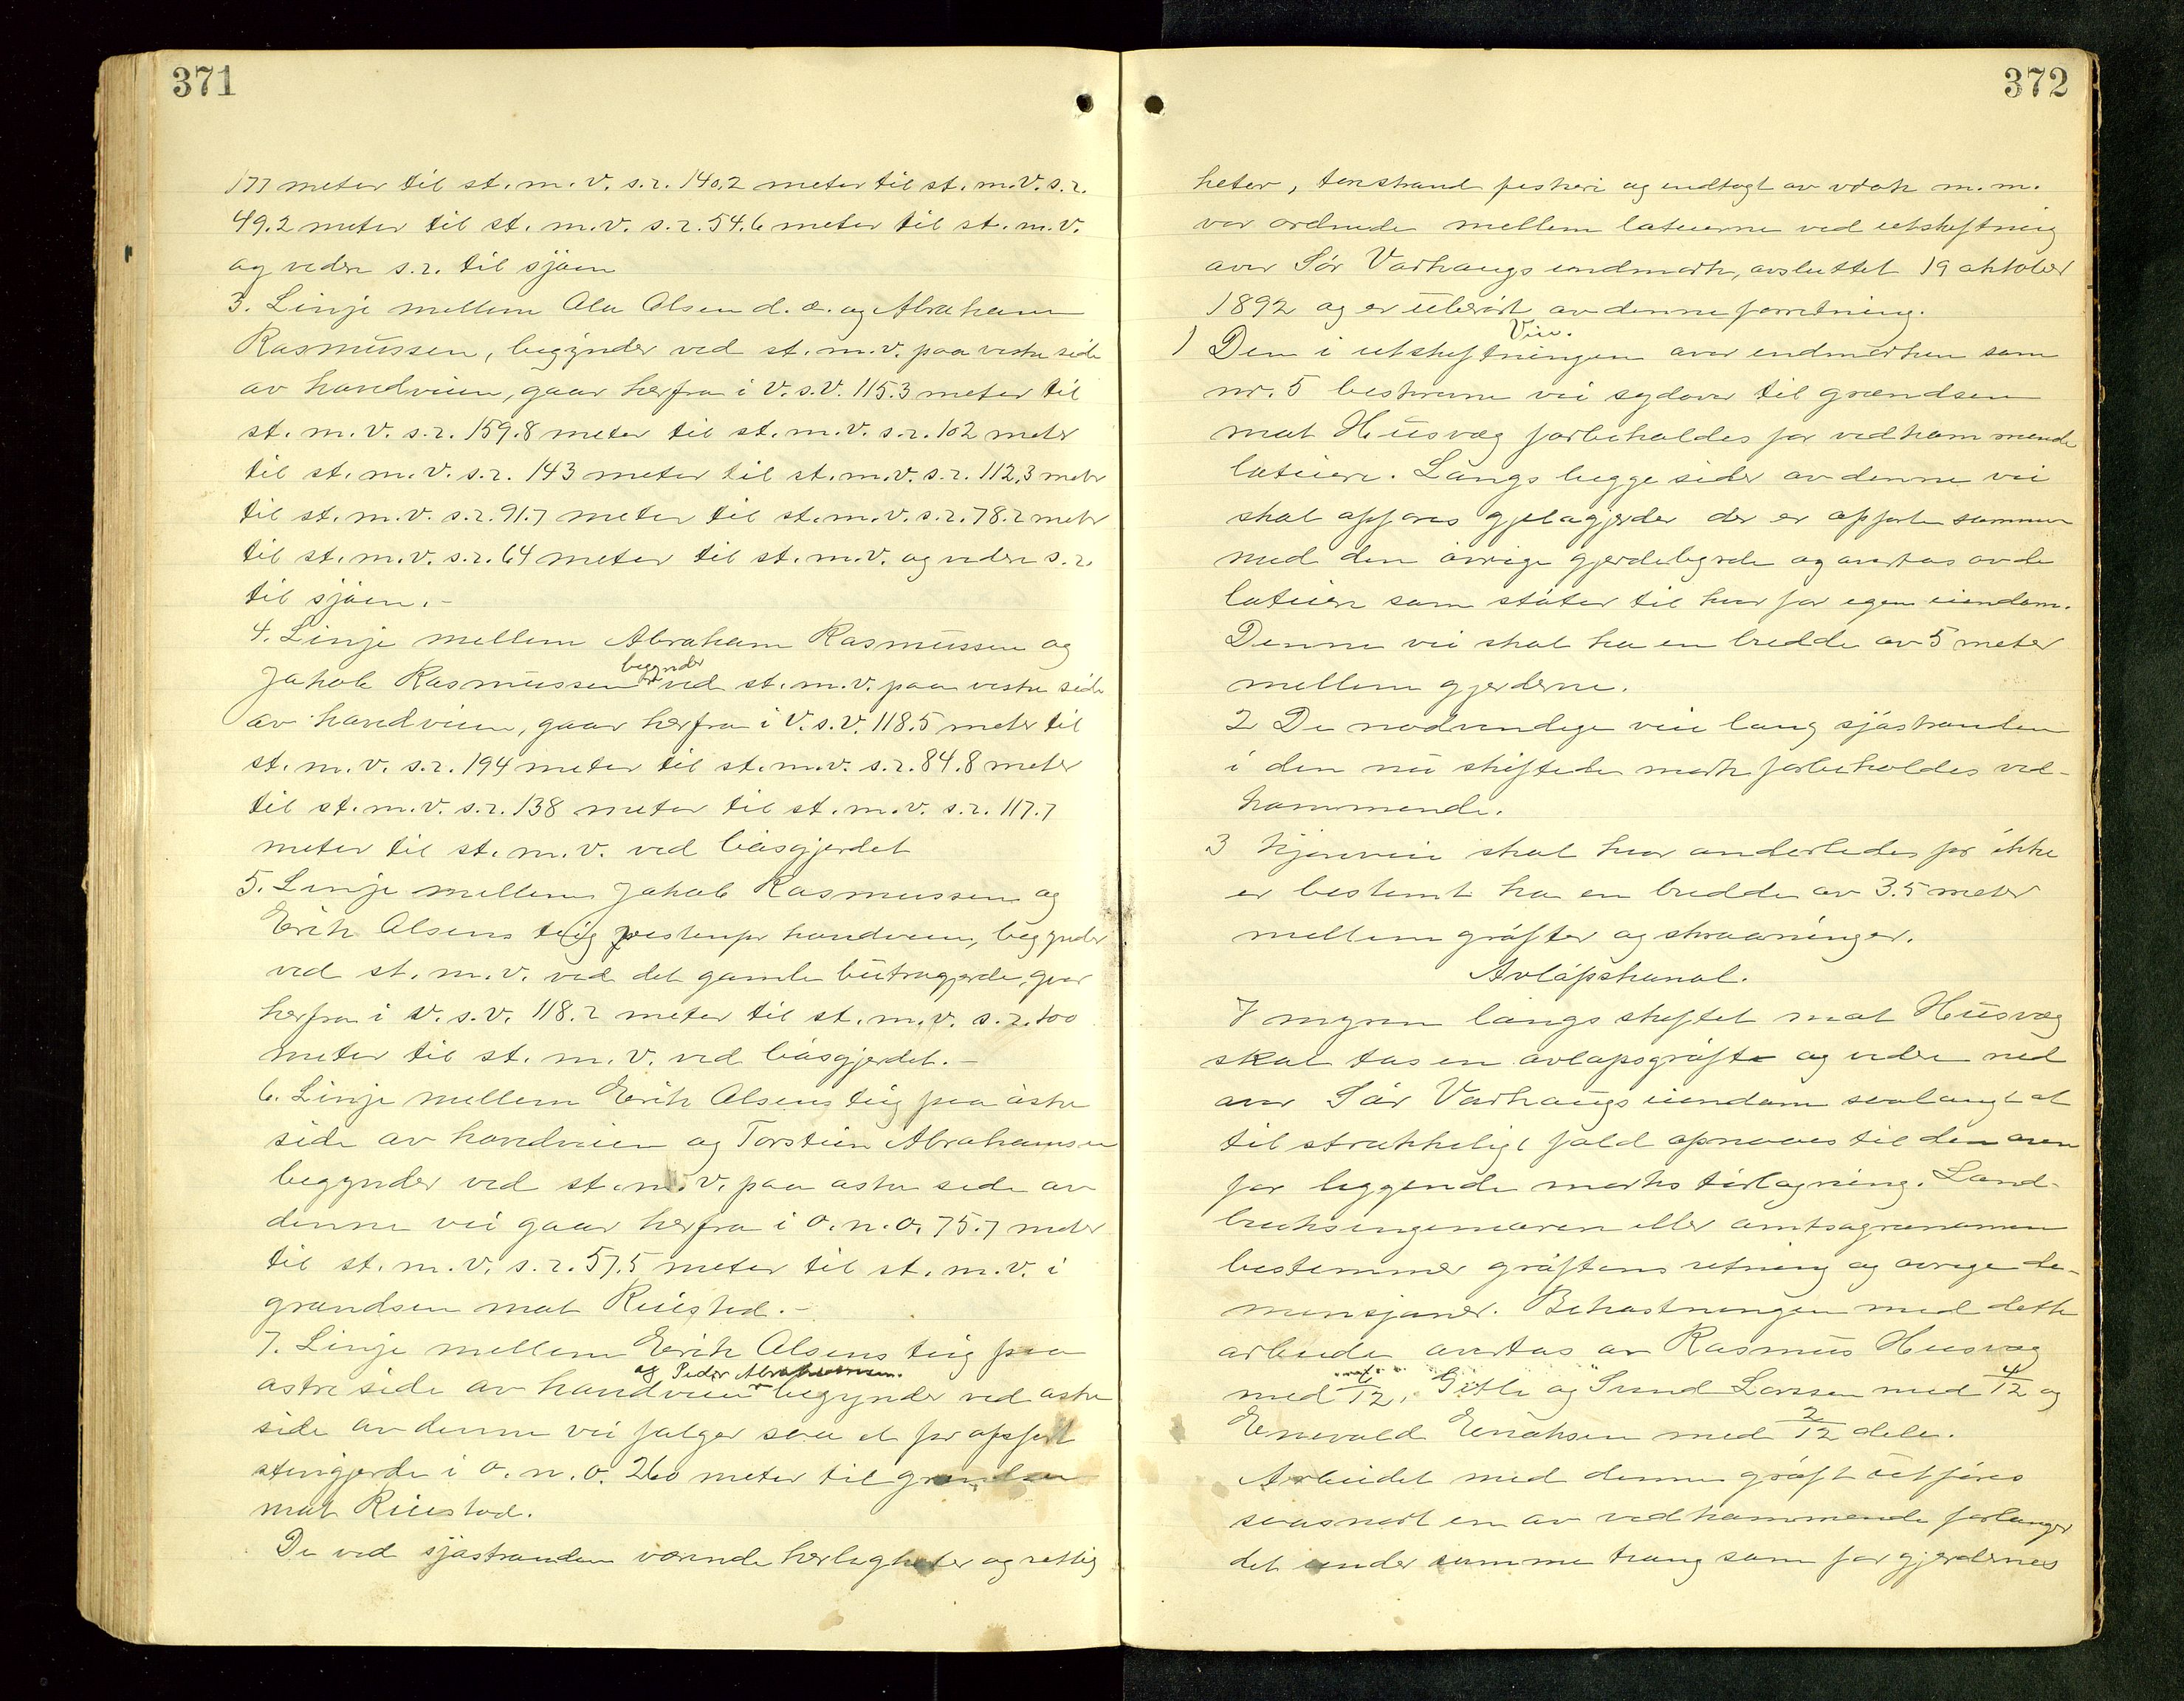 371
177 meter til st. m. v. s. r. 140,2 meter til st. m. v. s. r.
49.2 meter til st. m. v. s. r. 54.6 meter til st. m. v.
og videre s. r. til sjøen
3. Linje mellem Ola Olsen d. æ. og Abraham
Rasmussen, begynder ved st. m. v. paa vestre side
av hovedveien, gaar herfra i V. s. V. 115.3 meter til
st. m. v. s. r. 159.8 meter til st. m. v. s. r. 102 meter
til st. m. v. s. r. 143 meter til st. m. v. s. r. 112,3 meter
til st. m. v. s. r. 91.7 meter til st. m. v. s. r. 78.2 meter
til st. m. v. s. r. 64 meter til st. m. v. og videre s. r.
til sjøen. –
4. Linje mellem Abraham Rasmussen og
Jakob Rasmussen begynder ved st. m. v. paa vestre side
av hovedveien, gaar herfra i V. s. V. 118.5 meter til
st. m. v. s. r. 194 meter til st. m. v. s. r. 84.8 meter
til st. m. v. s. r. 138 meter til st. m. v. s. r. 117.7
meter til st. m. v. ved låsgjerdet
5. Linje mellem Jakob Rasmussen og
Erik Olsens teig vestenfor hovedveien, begynder
ved st. m. v. ved det gamle butragjerde, gaar
herfra i V. s. V. 118.2 meter til st. m. v. s. r. 100
meter til st. m. v. ved låsgjerdet. –
6. Linje mellem Erik Olsens teig paa østre
side av hovedveien og Torstein Abrahamsen
begynder ved st. m. v. paa østre side av
denne vei gaar herfra i o. n. o. 75.7 meter
til st. m. v. s. r. 57.5 meter til st. m. v. i
grændsen mot Reiestad. –
7. Linje mellem Erik Olsens teig paa
østre side av hovedveien og Peder Abrahamsen. begynder ved østre
side av denne vei følger saa et før opført
stengjerde i o. n. o. 260 meter til grændsen
mot Reiestad.
De ved sjøstranden værende herligheter og rettig
372
heter, tarestrand fiskeri og endtagt av vrak m. m.
var ordnede mellem lateierne ved utskiftning
over Sør Varhaugs indmark, avsluttet 19 oktober
1892 og er uberørt av denne forretning.
Veie.
1 Den i utskiftningen over indmarken som
nr. 5 beskrevne vei sydover til grændsen
mot Husvæg forbeholdes for vedkommende
lateiere. Langs begge sider av denne vei
skal opføres gjerder der er opført sammen
med den øvrige gjerdebyrde og overtas av de
lateiere som støter til hver for egen eiendom.
Denne vei skal ha en bredde av 5 meter
mellem gjerderne.
2 De nødvendige veie lang sjøstranden
i den nu skiftede mark forbeholdes ved-
kommende.
3 Kjøreveie skal hvor anderledes før ikke
er bestemt ha en bredde av 3.5 meter
mellem grøfter og skraaninger.
Avløpskanal.
I myren langs skiftet mot Husvæg
skal tas en avløpsgrøft og videre ned
over Sør Varhaugs eiendom saalangt at
tilstrækkeligt fald opnaaes til den oven
for liggende marks tørlægning. Land-
bruksingeniøren eller amtsagronomen
bestemmer grøftens retning og øvrige di-
mensjoner. Bekostningen med dette
arbeide overtas av Rasmus Husvæg
med 6/12, Gitle og Svend Larssen med 4/12 og
Enevald Eriksen med 2/12 dele.
Arbeidet med denne grøft utføres
saasnart en av vedkommende forlanger
det under samme tvang som for gjerdernes